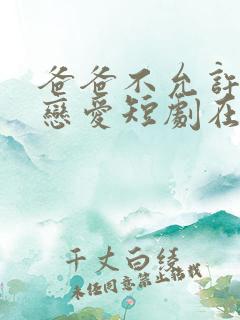 爸爸不允許
戀愛短劇在
千丈白綾
未经同意禁止转载